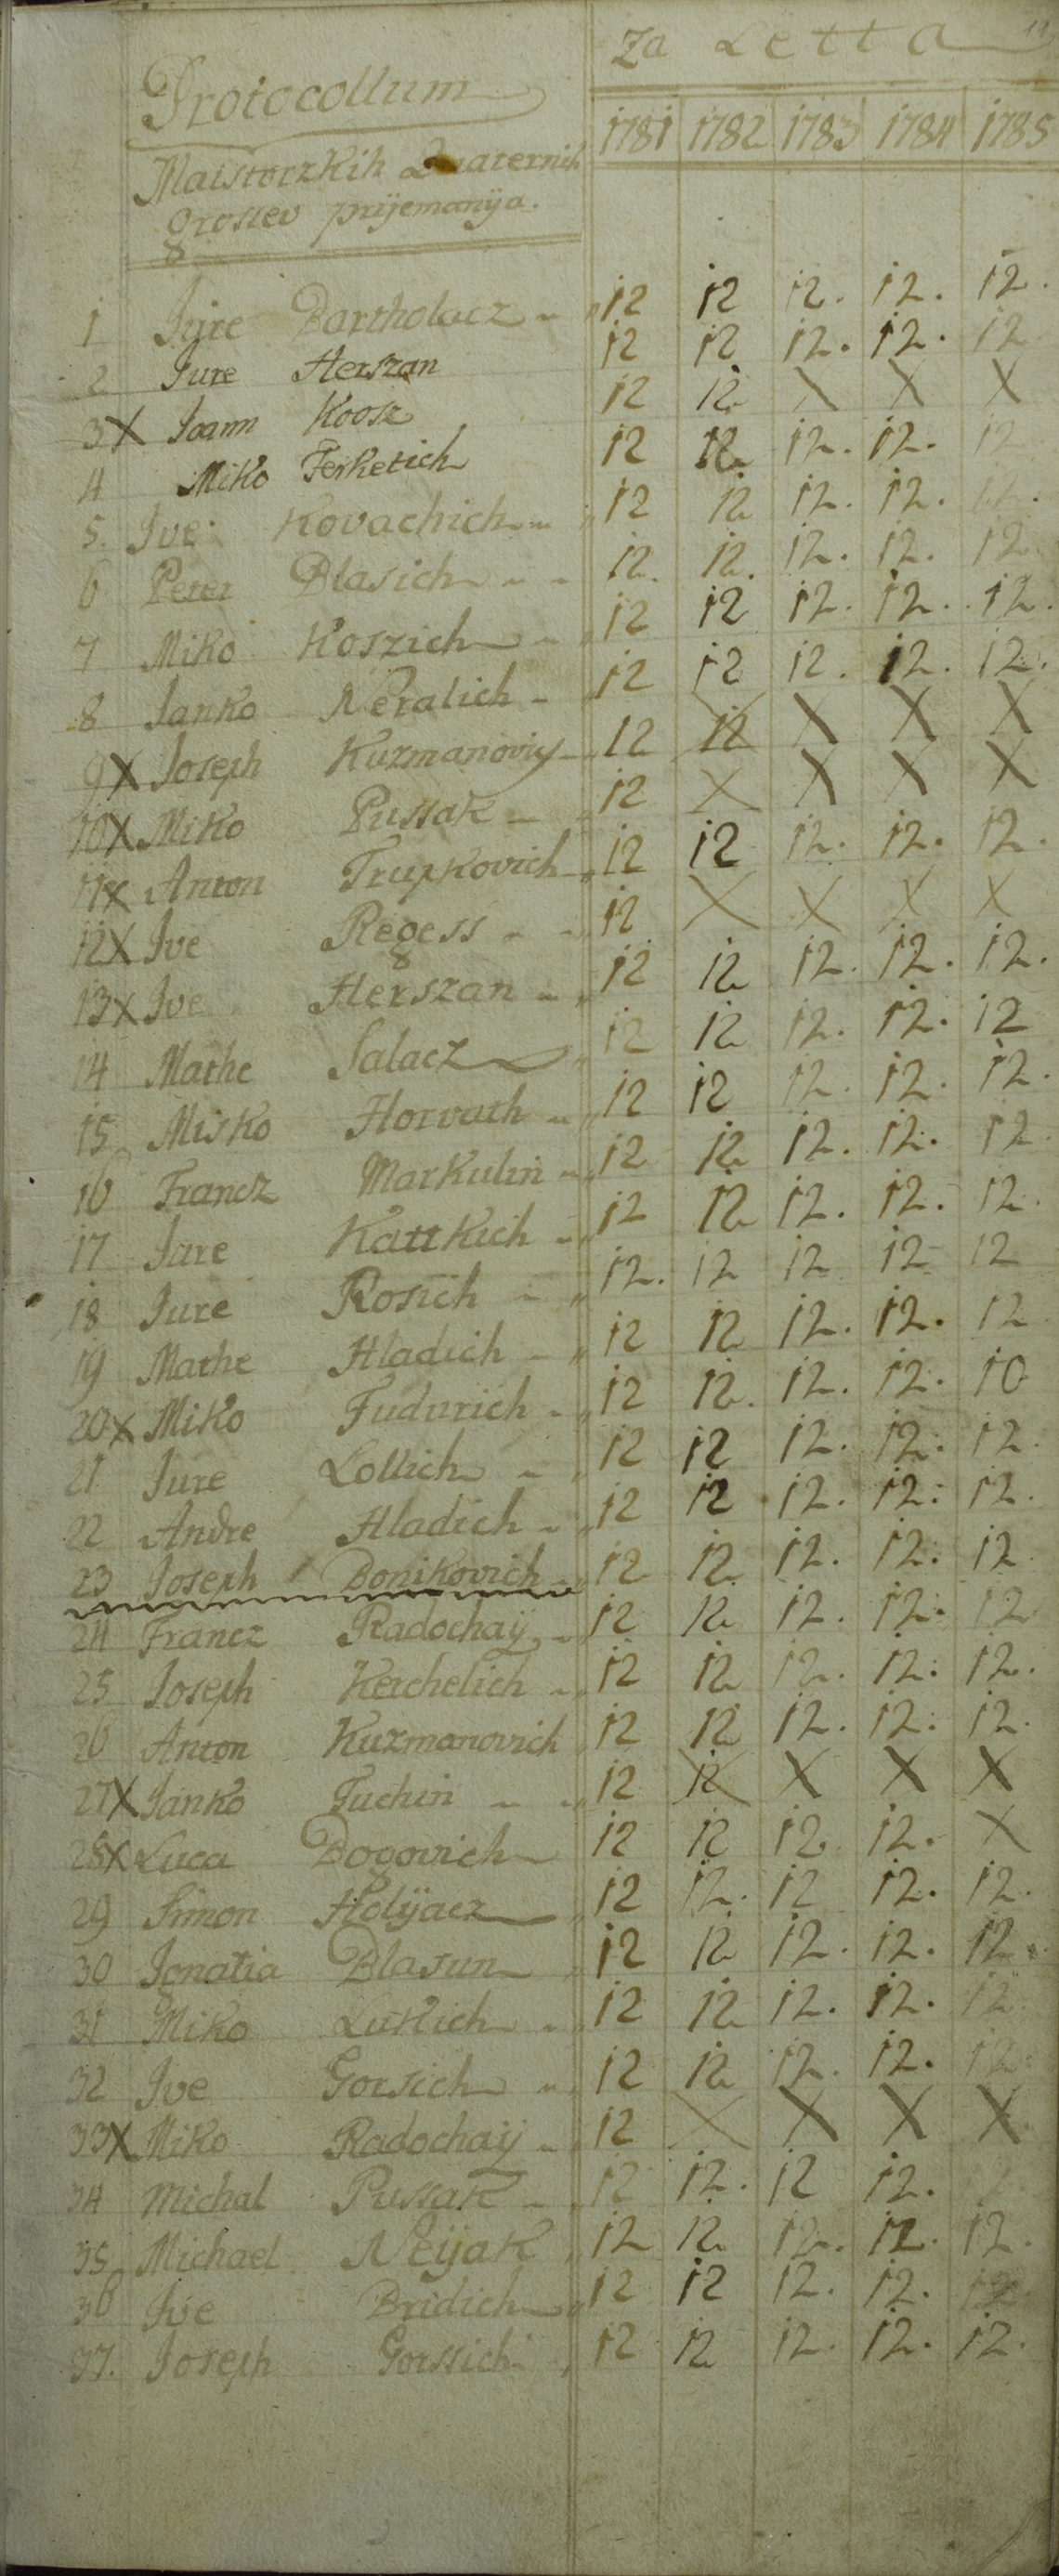 11
Za Letta
Protocollum
Maistorzkih Quaternih
grossev prijemanÿa.
1781 1782 1783 1784 1785
1 Jyre Bartholacz 12 12 12. 12. 12.
2 Jure Herszan 12 12 12. 12. 12
3 X Joann Koosz 12 12 X X X
4 Miko Ferketich 12 12 12. 12. 12
5. Ive Kovachich 12 12 12. 12. 12.
6 Peter Blasich 12. 12. 12. 12. 12
7 Miko Koszich 12 12 12. 12. 12.
8 Janko Neralich 12 12 12. 12. 12.
9 X Joseph Kuzmanovich 12 12 X X X
10 X Miko Pussak 12 X X X X
11 X Anton Trupkovich 12 12 12. 12. 12.
12 X Ive Regess 12 X X X X
13 X Ive Herszan 12 12 12. 12. 12.
14 Mathe Salacz 12 12 12. 12. 12
15 Misko Horvath 12 12 12. 12. 12.
16 Francz Markulin 12 12 12. 12. 12.
17 Jure Kattkich 12 12 12. 12. 12.
18 Jure Rosich 12. 12 12 12 12
19 Mathe Hladich 12 12 12. 12. 12
20 X Miko Fudurich 12 12. 12. 12. 10
21 Jure Lollich 12 12 12. 12. 12.
22 Andre Hladich 12 12 12. 12. 12.
23 Joseph Bonikovich 12 12 12. 12. 12
24 Francz Radochaÿ 12 12 12. 12. 12
25 Joseph Kerchelich 12 12 12. 12. 12.
26 Anton Kuzmanovich 12 12 12. 12. 12.
27 X Janko Fuchin 12 12 X X X
28 X Luca Bogovich 12 12 12. 12. X
29 Simon Holÿacz 12 12. 12 12. 12.
30 Ignatia Blasun 12 12 12. 12. 12
31 Miko Lukich 12 12 12. 12. 12
32 Ive Gorsich 12 12 12. 12. 12
33 X Miko Radochaÿ 12 X X X X
34 Michal Pussak 12 12. 12 12.
35 Michael Neÿak 12 12 12. 12. 12.
36 Ive Bridich 12 12 12. 12. 12
37. Joseph Gorssich 12 12 12. 12. 12.